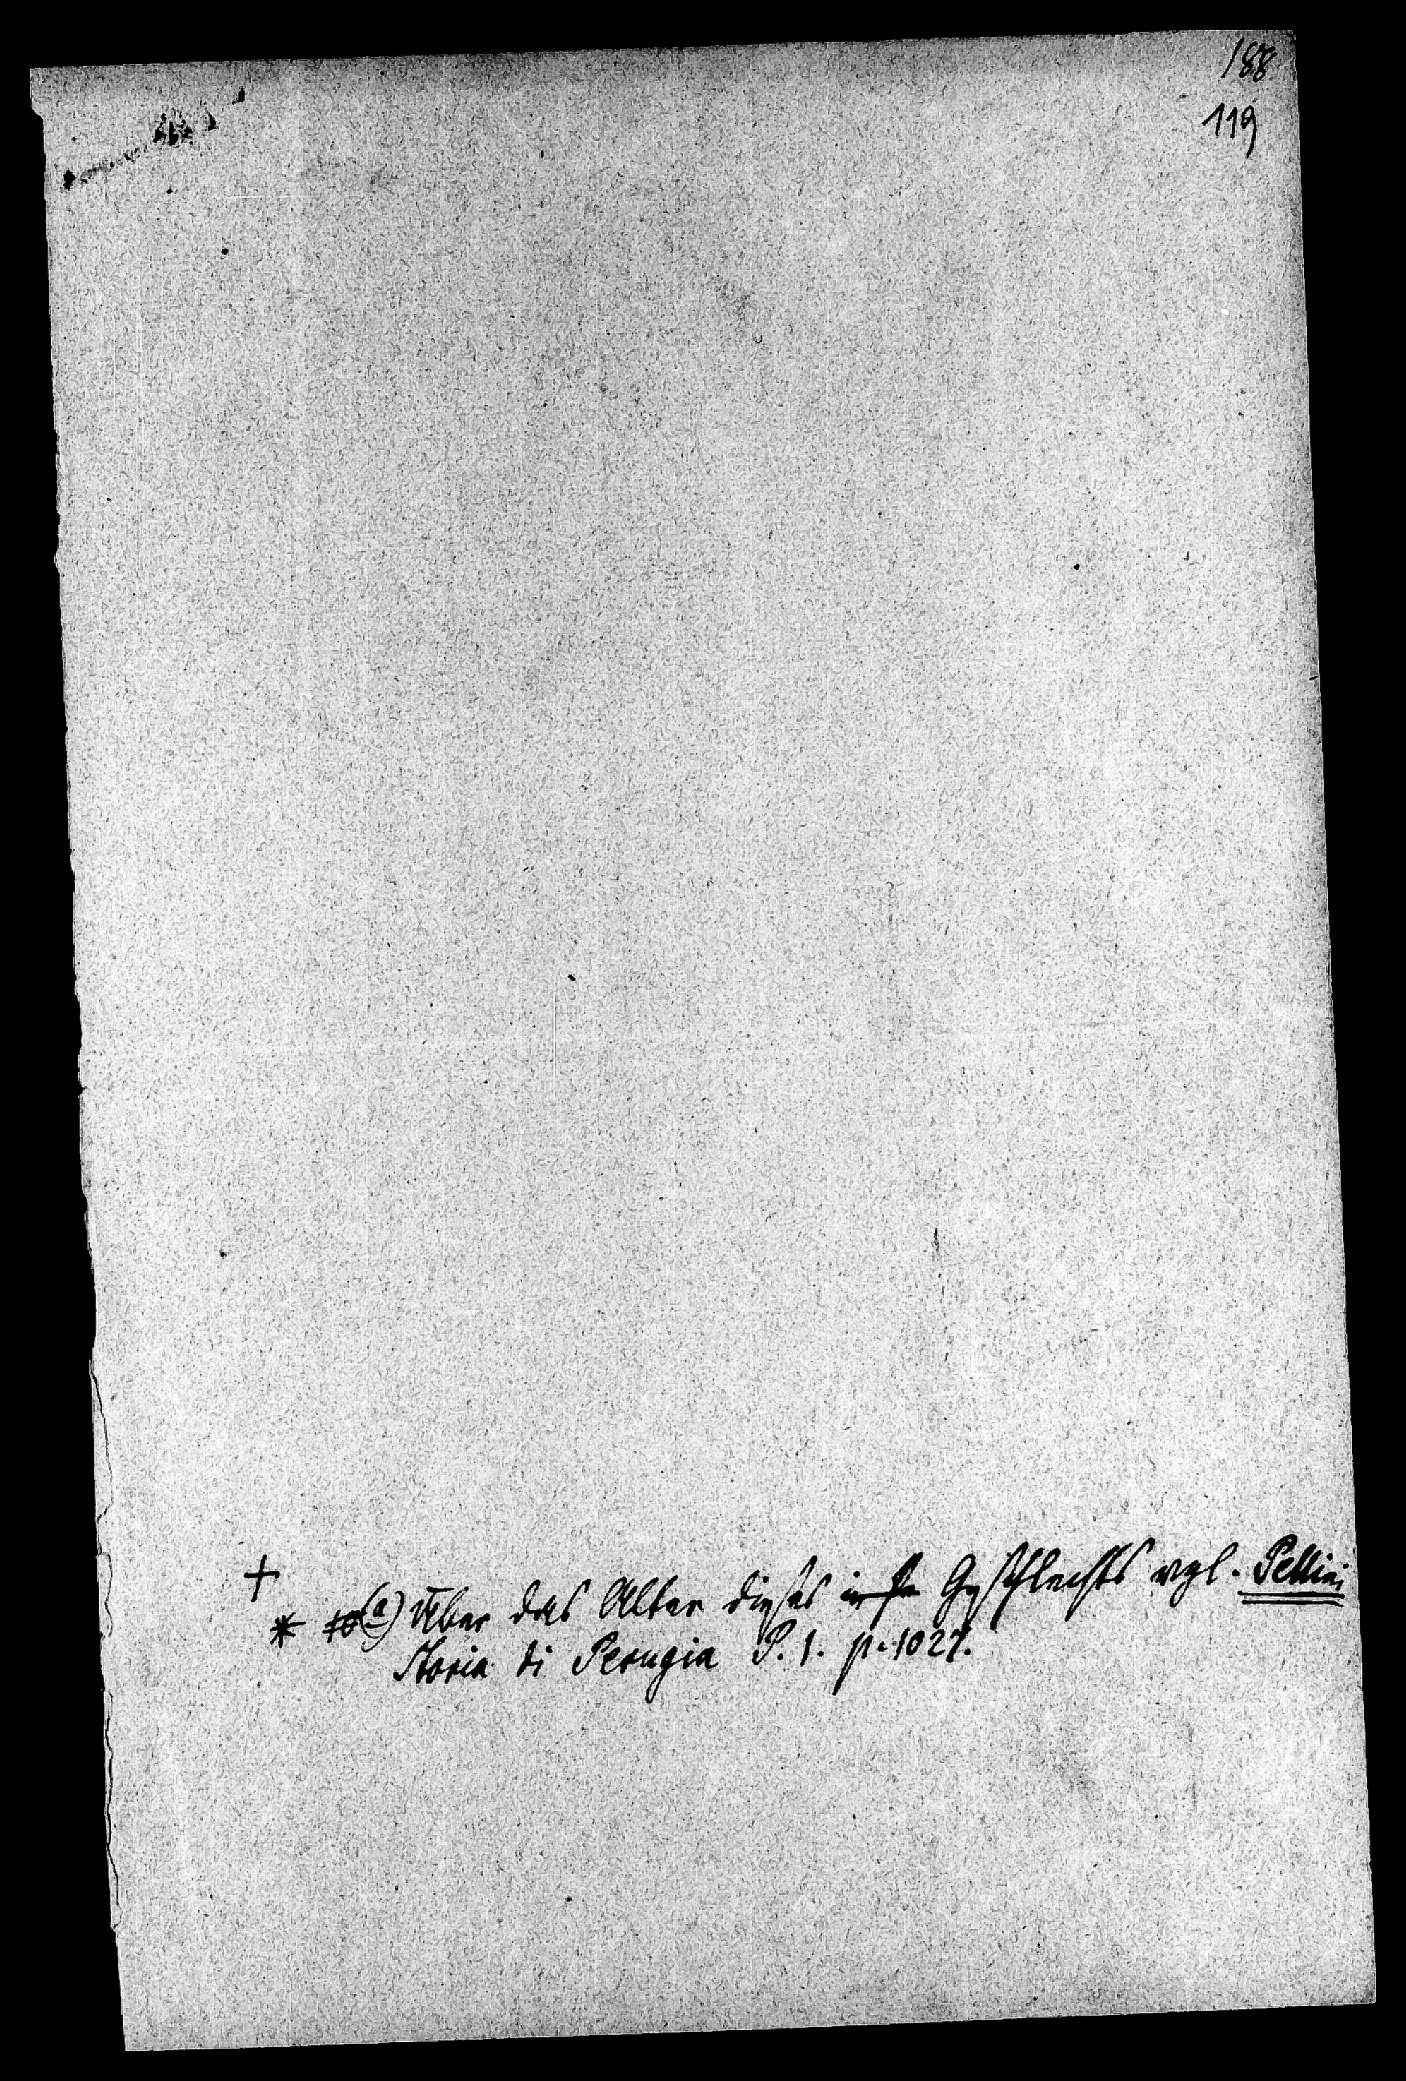 188
119
+
* (a) Über das Alter dieses Geschlechts vgl. Pellini
Storia di Perugia P. 1. p. 1027.